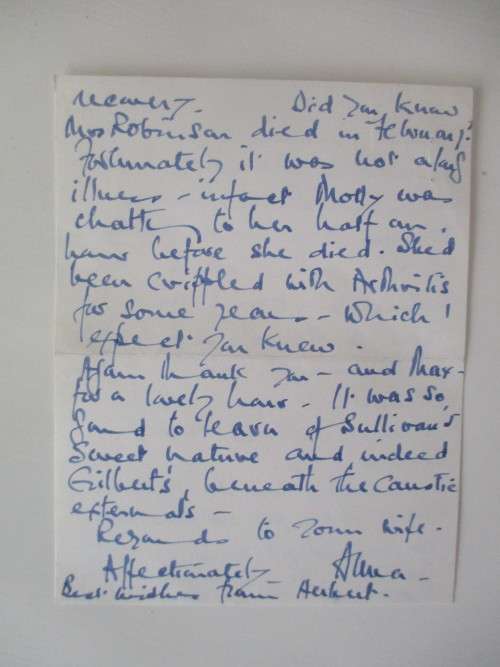 Did you know
Mrs Robinson died in February?
Fortunately it was not a long
illness - infact Molly was
chatting to her half an
hour before she died. She'd
been crippled with Arthritis
for some years - which I
expect you knew.
Again thank you - and Max -
for a lovely hour. It was so
good to learn of Sullivan's
Sweet nature and indeed
Gilbert's, beneath the caustic
externals -
Regards to your wife.
Affectionately
Best wishes from Herbert.